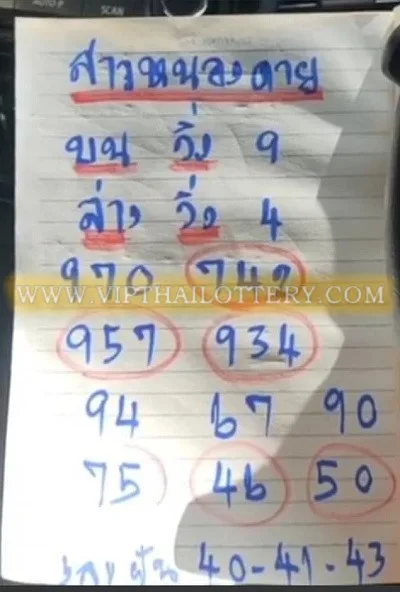 AUTO P SCAN
สาวหนองคาย
บน วิ่ง 9
ล่าง วิ่ง 4
970 742
WWW.VIPTHAILOTTERY.COM
957 934
94 67 90
75 46 50
40-41-43